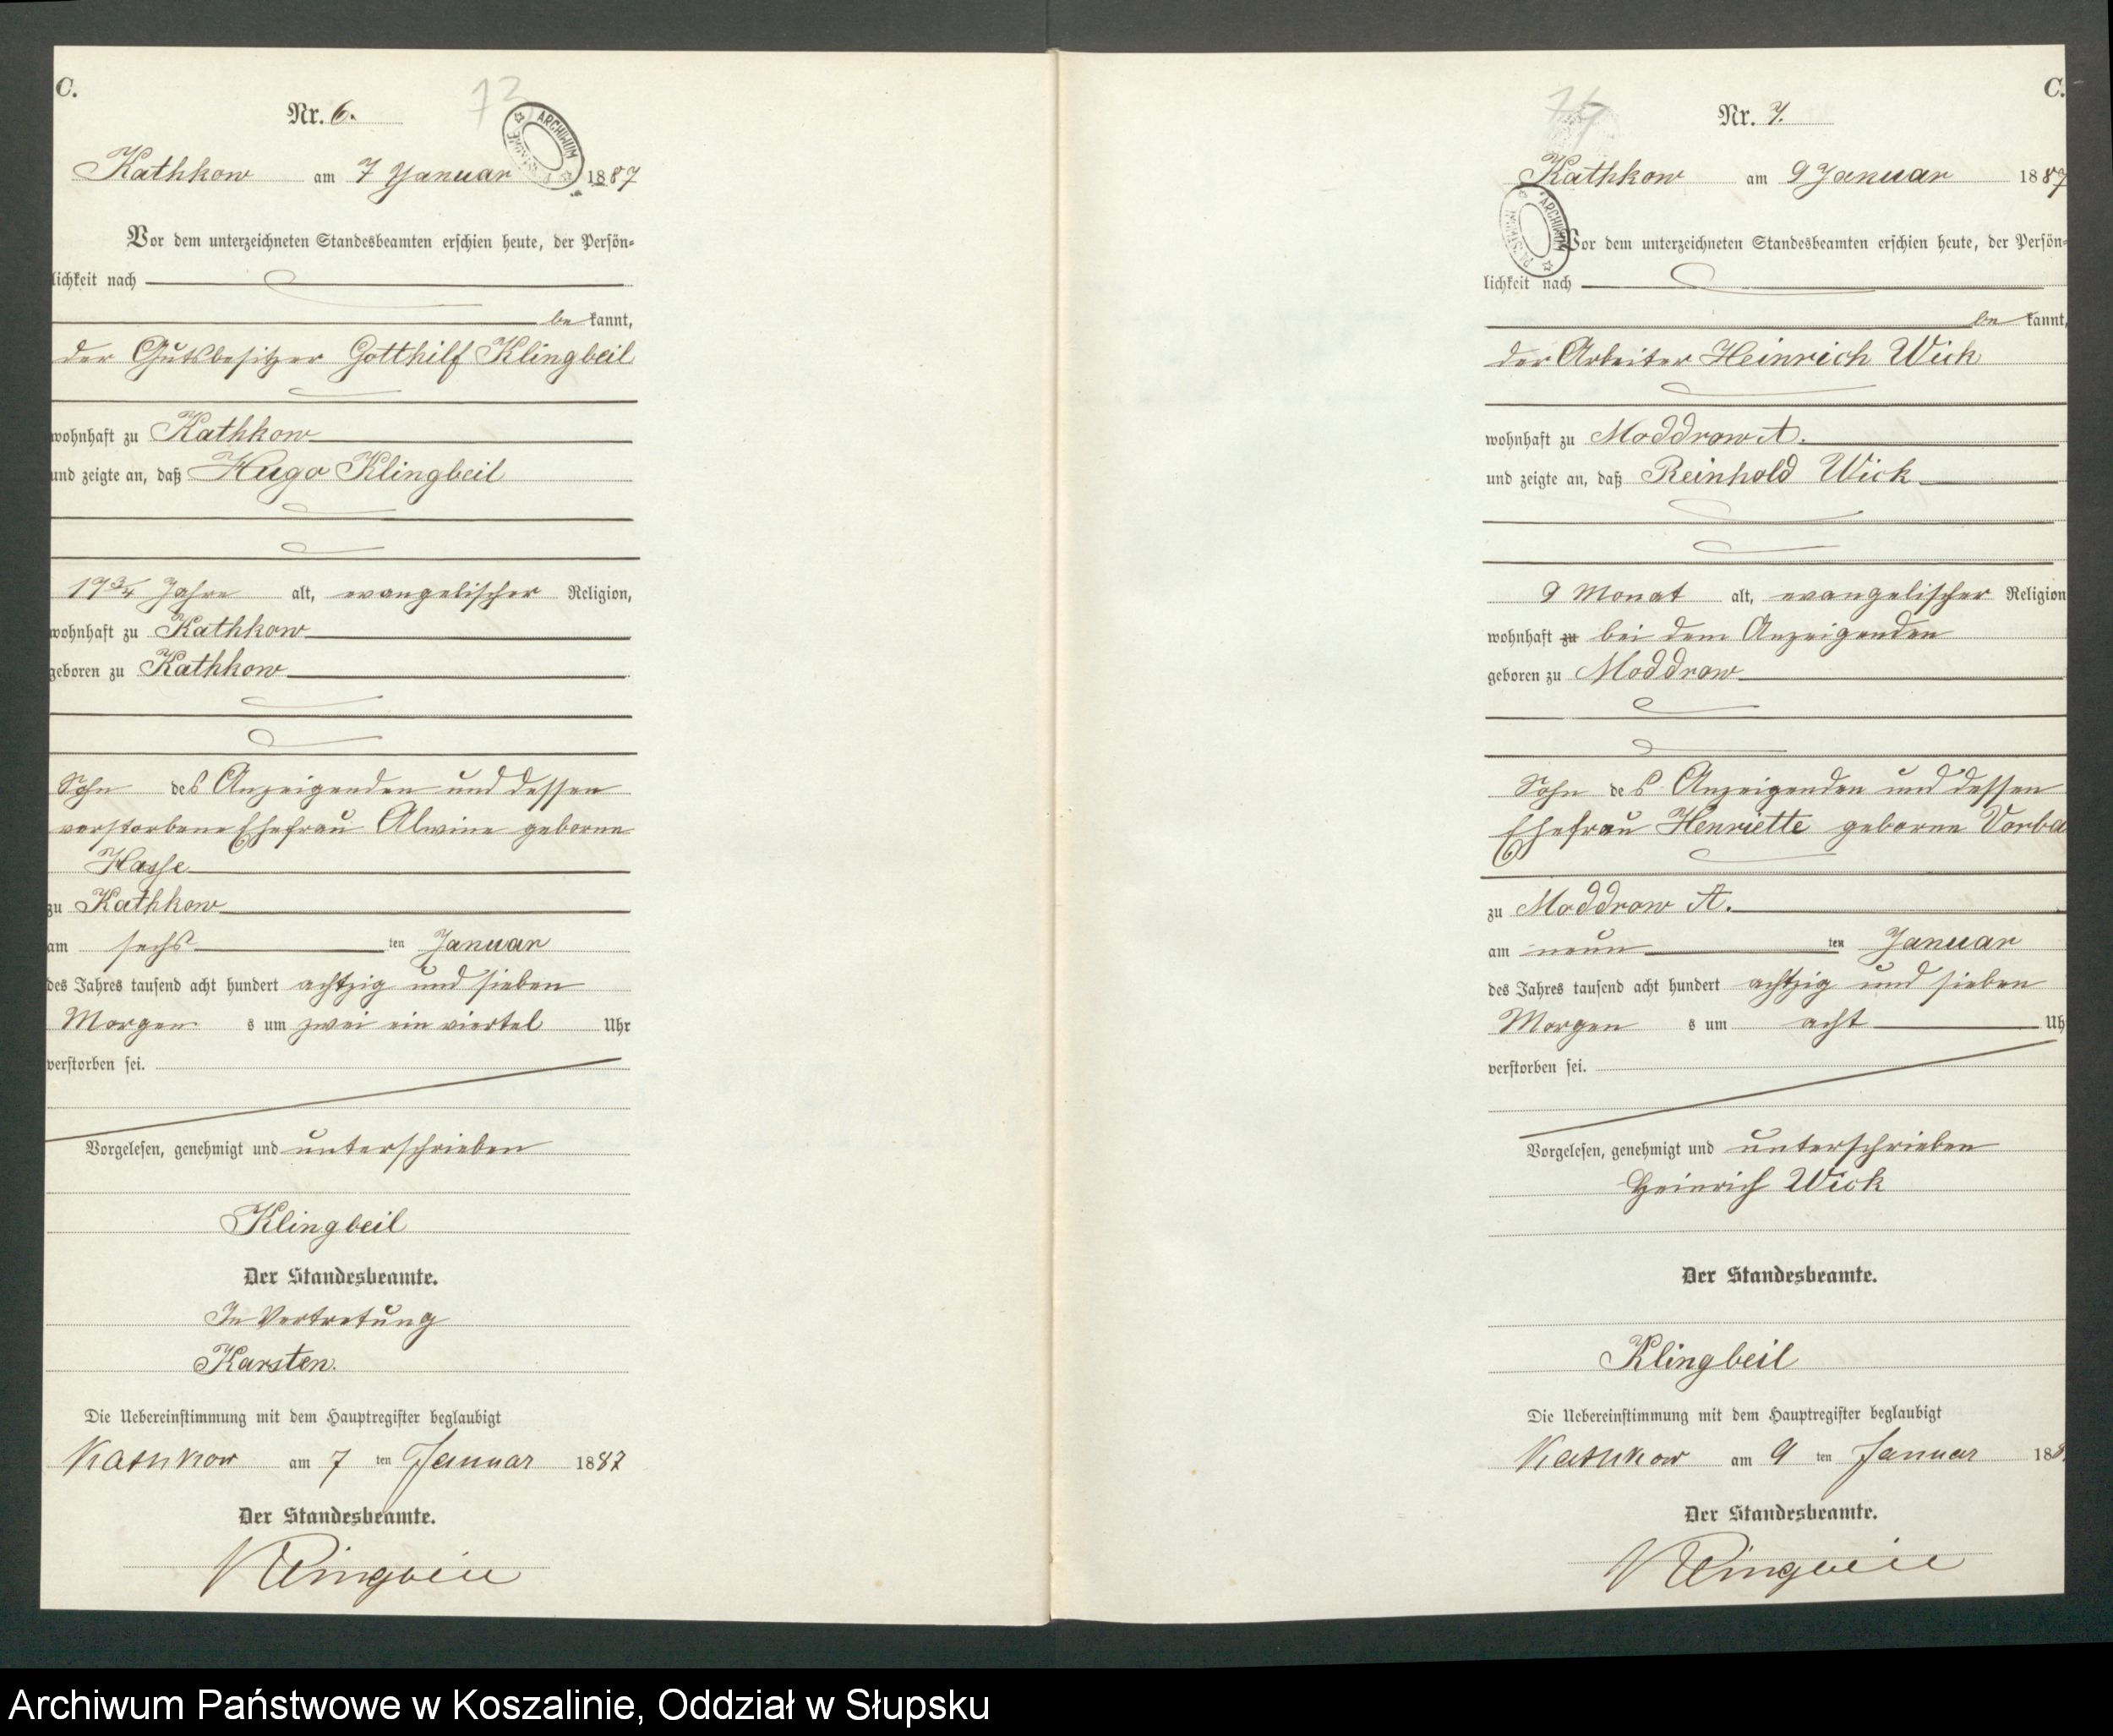 C.
73
Nr. 6.
ARCHIWUM
Kathkow am 7 Januar 1887
Vor dem unterzeichneten Standesbeamten erschien heute, der Persön-
lichkeit nach
be kannt,
der Gutsbesitzer Gotthilf Klingbeil
wohnhaft zu Kathkow
und zeigte an, daß Hugo Klingbeil
17 3/4 Jahre alt, evangelischer Religion,
wohnhaft zu Kathkow
geboren zu Kathkow
Sohn des Anzeigenden und dessen
verstorbene Ehefrau Alwine geborne
Hasse
zu Kathkow
am sechs ten Januar
des Jahres tausend acht hundert achtzig und sieben
Morgen s um zwei ein viertel Uhr
verstorben sei.
Vorgelesen, genehmigt und unterschrieben
Klingbeil
Der Standesbeamte.
In Vertretung
Karsten.
Die Uebereinstimmung mit dem Hauptregister beglaubigt
Kathkow am 7 ten Januar 1887
Der Standesbeamte.
Klingbeil
C.
Nr. 7.
Kathkow am 9 Januar 1887
ARCHIWUM
Vor dem unterzeichneten Standesbeamten erschien heute, der Persön-
lichkeit nach
be kannt,
der Arbeiter Heinrich Wick
wohnhaft zu Moddrow A.
und zeigte an, daß Reinhold Wick
9 Monat alt, evangelischer Religion
wohnhaft zu bei dem Anzeigenden
geboren zu Moddrow
Sohn des Anzeigenden und dessen
Ehefrau Henriette geborne Vorba
zu Moddrow A.
am neun ten Januar
des Jahres tausend acht hundert achtzig und sieben
Morgen s um acht Uh
verstorben sei.
Vorgelesen, genehmigt und unterschrieben
Heinrich Wick
Der Standesbeamte.
Klingbeil
Die Uebereinstimmung mit dem Hauptregister beglaubigt
Kathkow am 9 ten Januar 188
Der Standesbeamte.
Klingbeil
Archiwum Państwowe w Koszalinie, Oddział w Słupsku